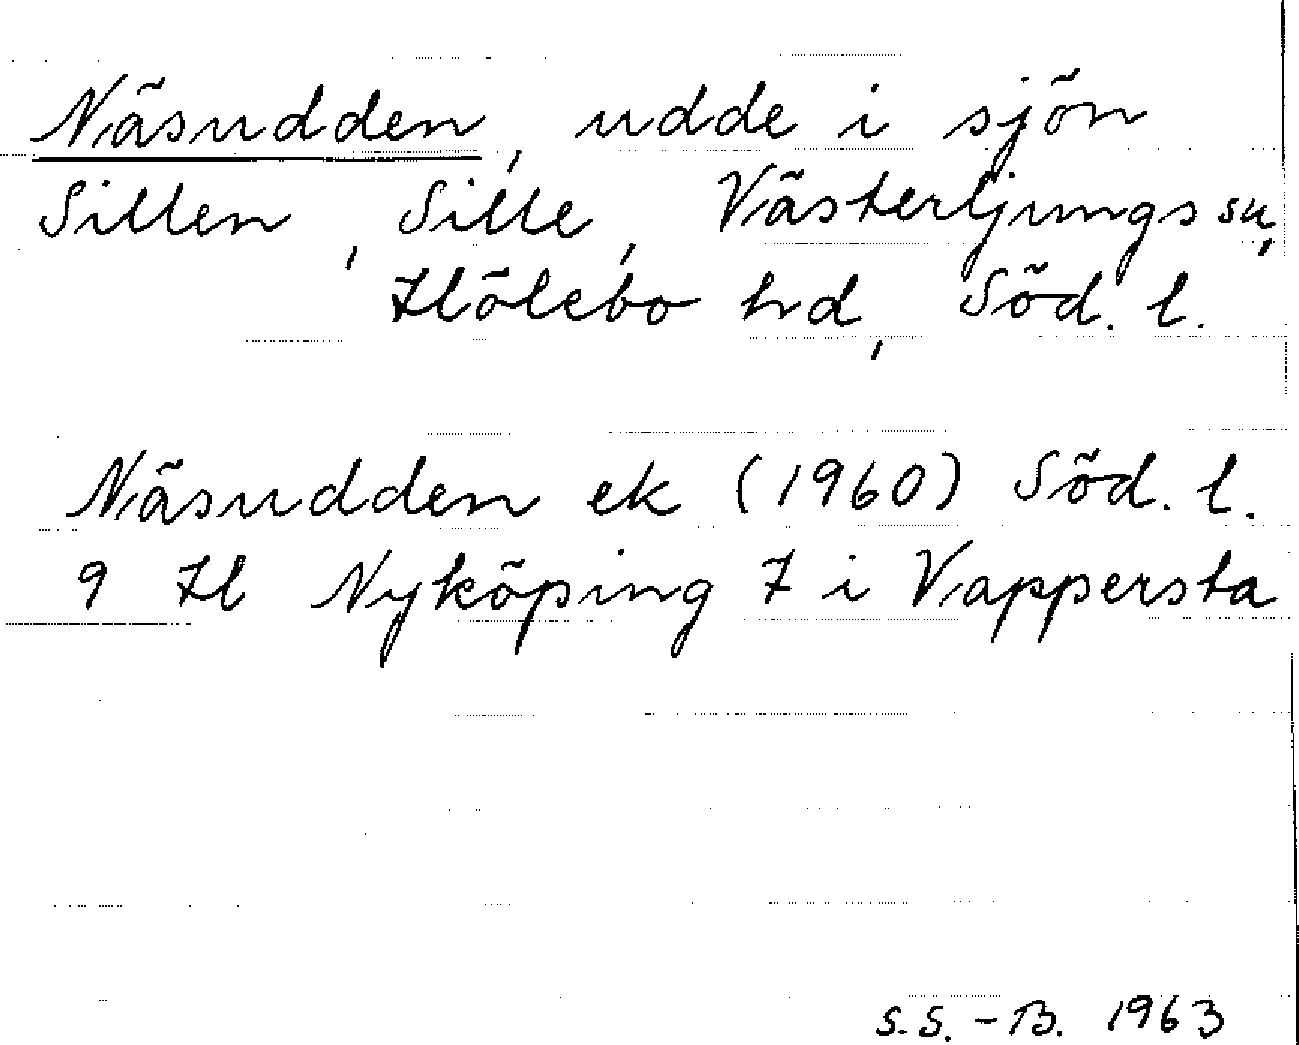 Näsudden, udde i sjön
Sillen, Sille, Västerljungs sn,
Hölebo hd, Söd. l.
Näsudden ek (1960) Söd. l.
9 H Nyköping 7 i Vappersta
S.S.-B. 1963